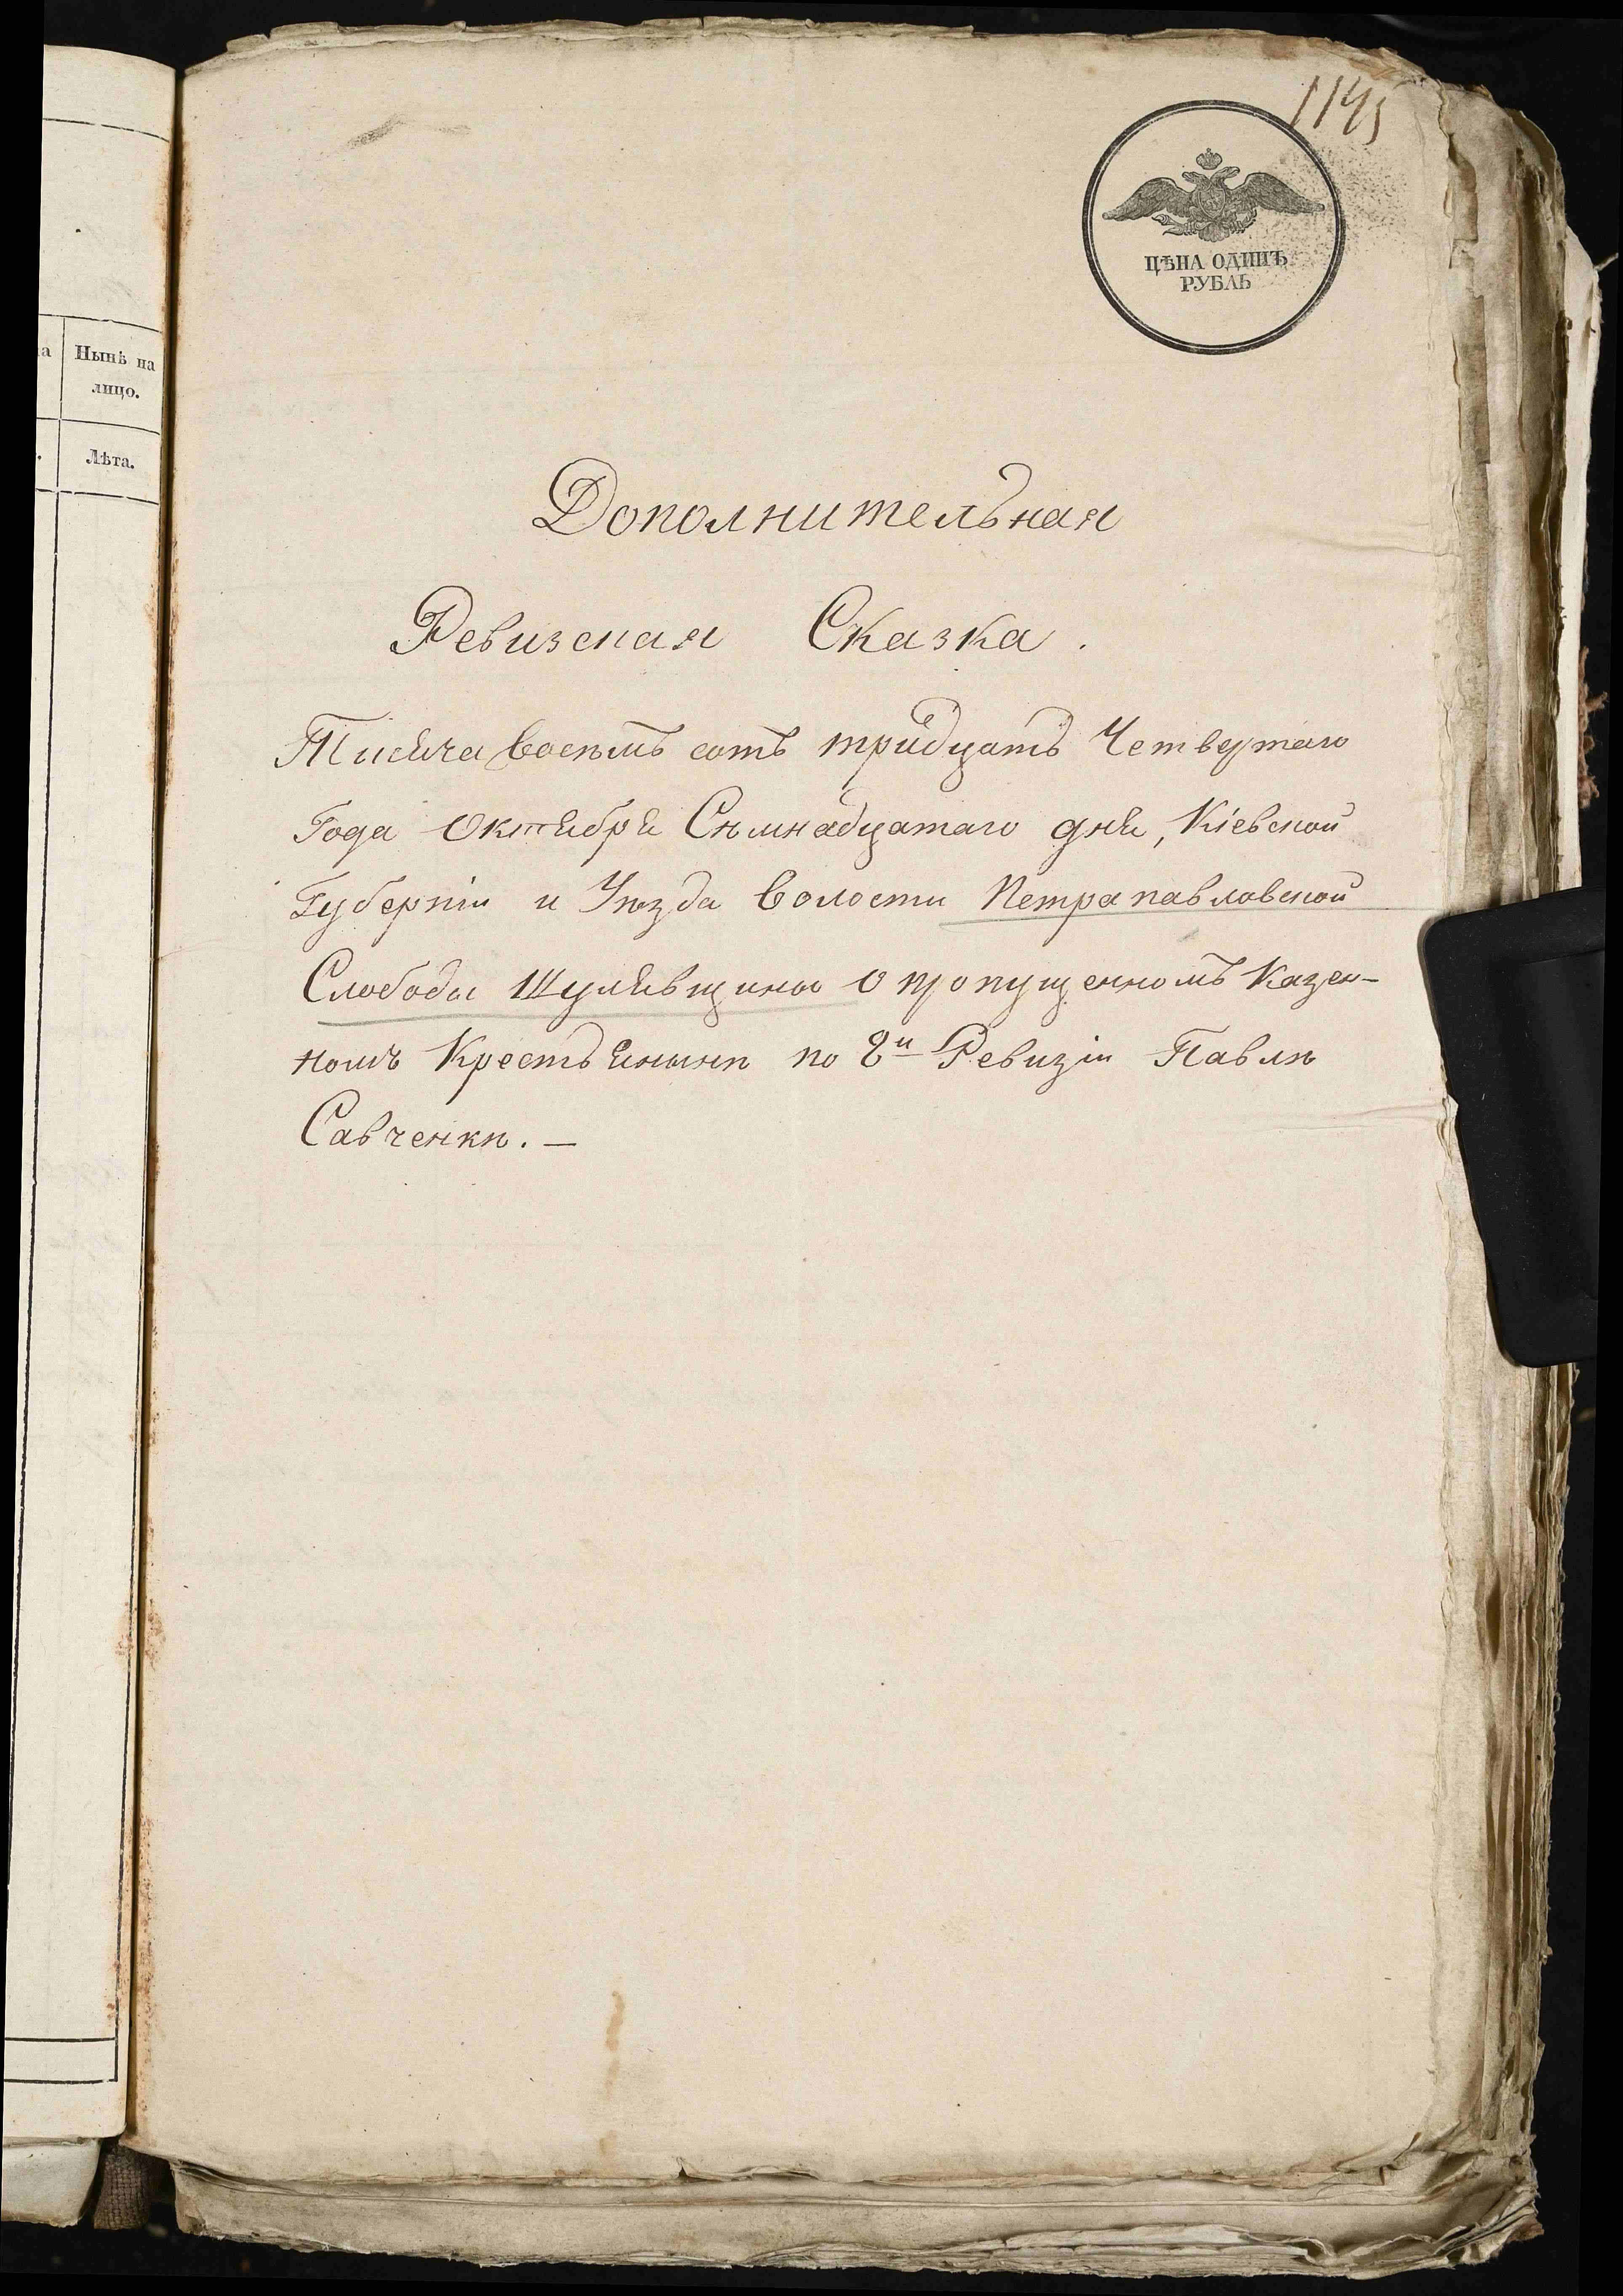 1145
ЦѢНА ОДИНЪ
РУБЛЬ
Нынѣ на
лицо.
Лѣта.
Дополнительная
Ревизская Сказка.
Тисяча восемъ сотъ тридцать Четвертаго
Года Октября Сѣмнадцатаго дня, Кіевской
Губерніи и Уѣзда Волости Петрапавловской
Слободы Шулявщины О пропущенномъ Казен-
номъ Крестьянинѣ по 8й Ревизіи Павлѣ
Савченкѣ. —